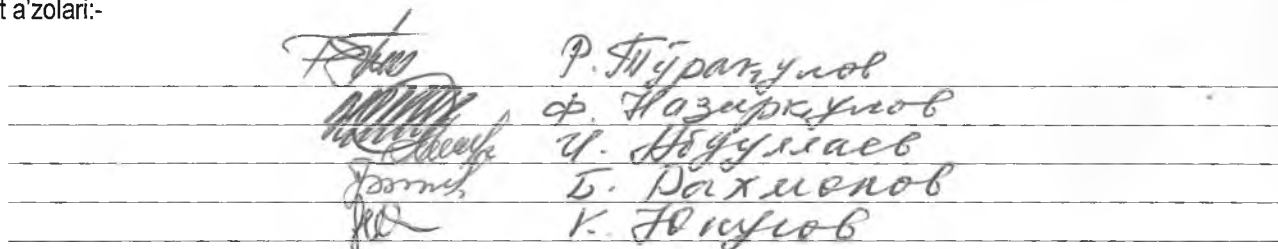 t a'zolari:-
Р. Тўрақулов
Ф. Назирқулов
И. Абдуллаев
Б. Рахмонов
К. Юнусов